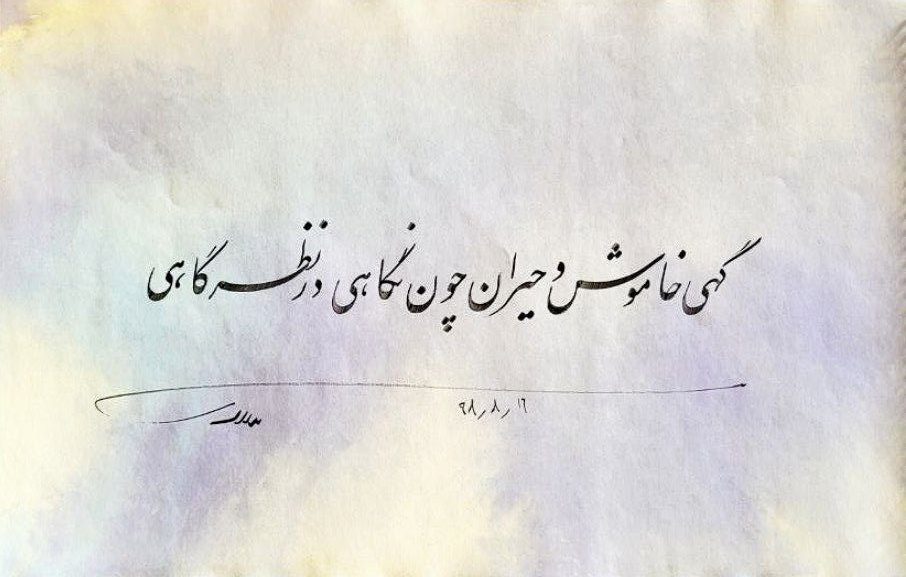 گهی خاموش و حیران چون نگاهی در نظرگاهی
۹۸٫۸٫۱۶